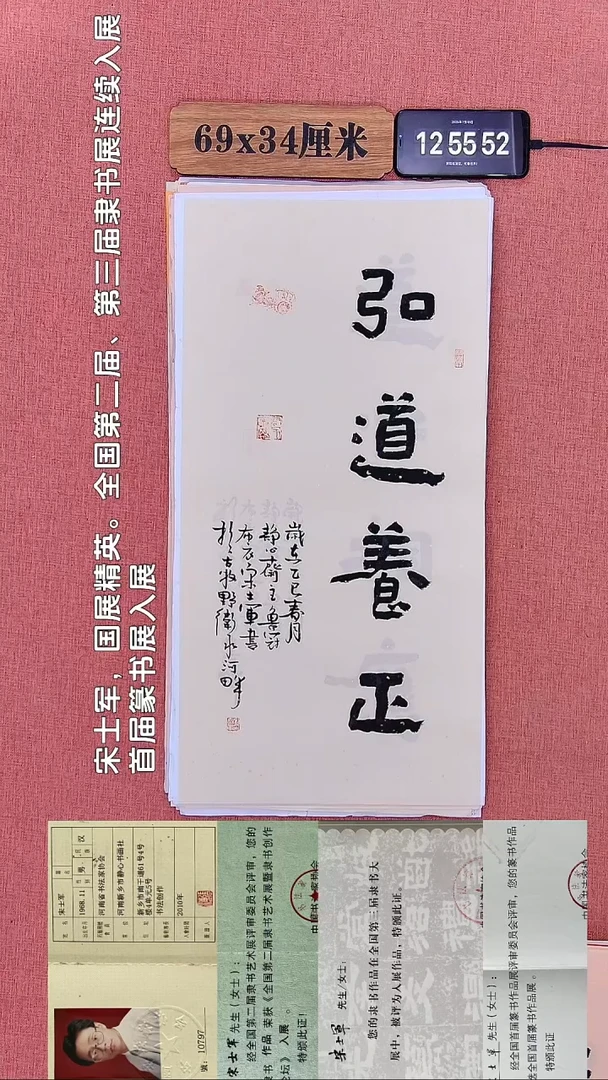 宋士军，国展精英。全国第二届、第三届隶书展连续入展
首届篆书展入展
69x34厘米
12 55 52
弘
道
養
正
歲在乙巳春月
靜心齋主魯冠
布衣宋士軍書
於古牧野衛水河畔
宋士军
1968.11
男
汉
河南省书法家协会
河南新乡市静心书画社
新乡市南干道61号4号
楼4单元5号
书法创作
2010年
号：10797
宋士军 先生（女士）：
经全国第二届隶书艺术展评审委员会评审，您的
隶书 作品 荣获《全国第二届隶书艺术展暨隶书创作
论坛》入展。
特颁此证！
宋士军 先生（女士）：
您的隶书作品在全国第三届隶书大
展中，被评为入展作品，特颁此证。
士军 先生（女士）：
经全国首届篆书作品展评审委员会评审，您的篆书作品
全国首届篆书作品展。
特颁此证